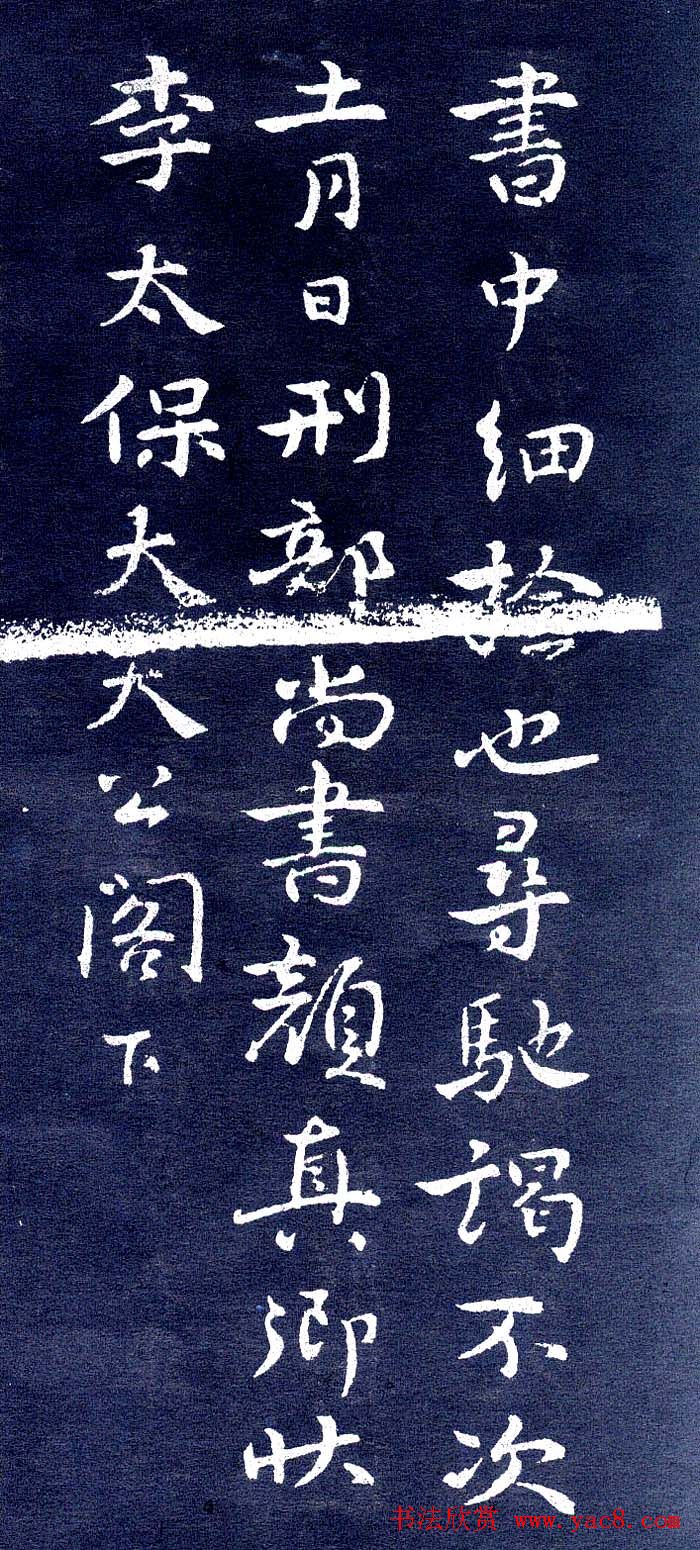 書中細捡也尋馳謁不次
十一月日刑部尚書顏真卿狀
李太保大夫公閣下
书法欣赏 www.yac8.com